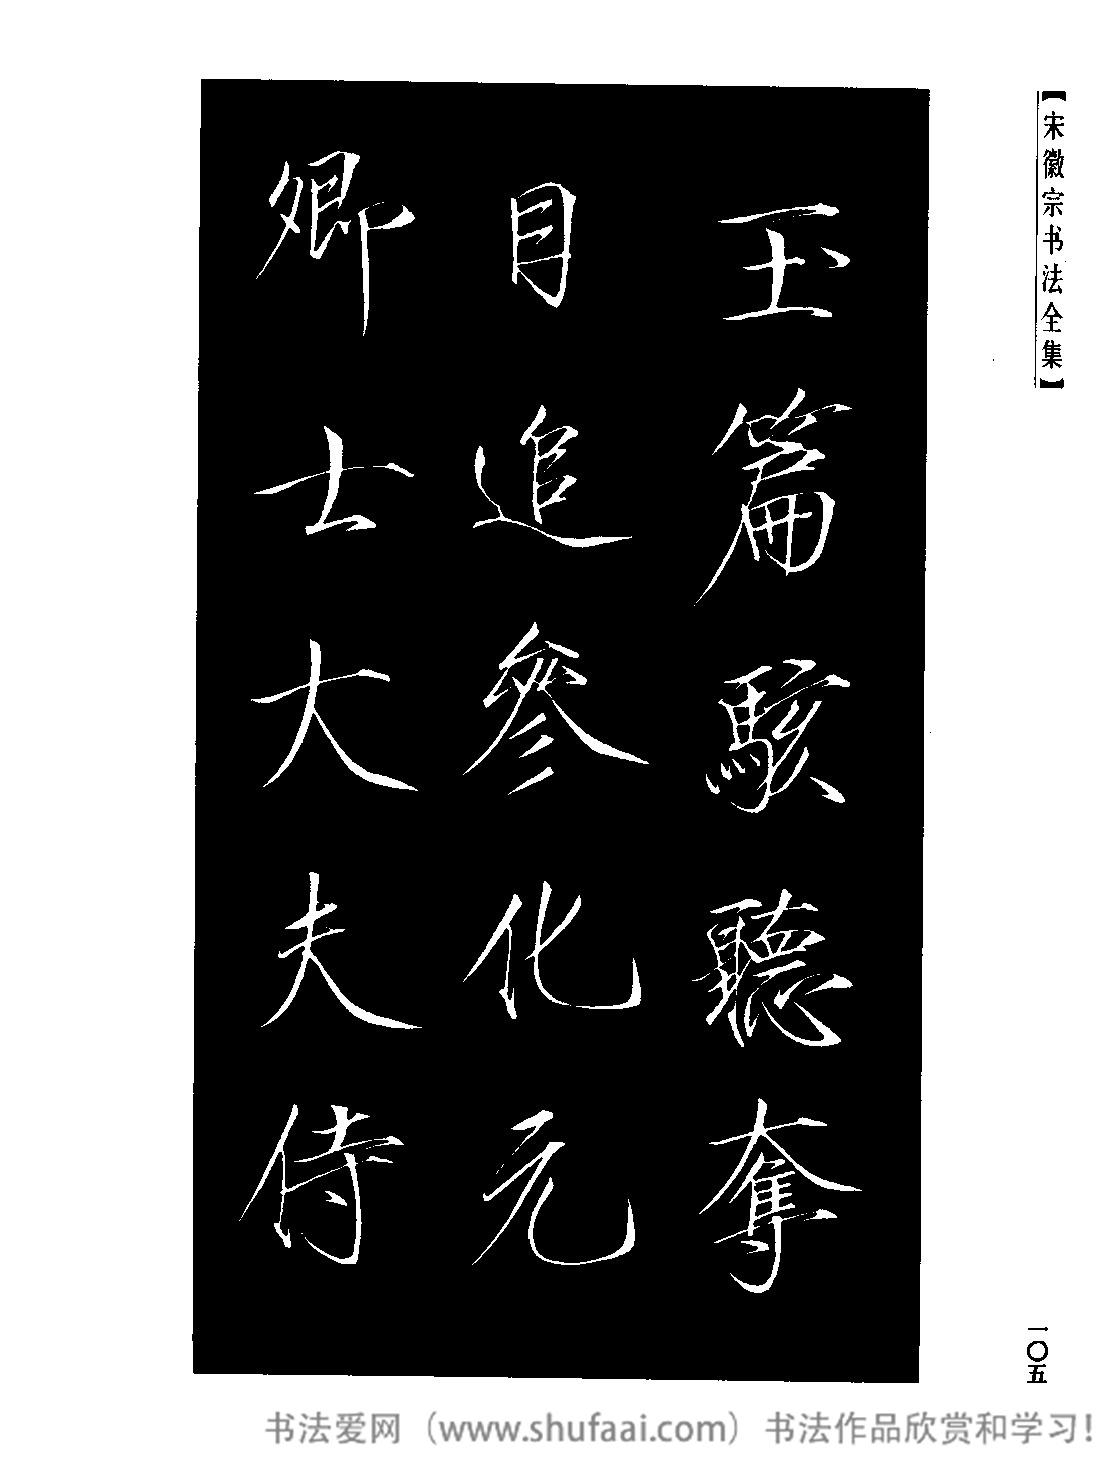 【宋徽宗书法全集】
玉篇駭聽奪
目追參化元
卿士大夫侍
一〇五
书法爱网（www.shufaai.com）书法作品欣赏和学习！